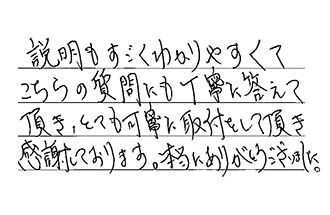 説明もすごくわかりやすくて
こちらの質問にも丁寧に答えて
頂き、とても丁寧に取付をして頂き
感謝しております。本当にありがとうございました。